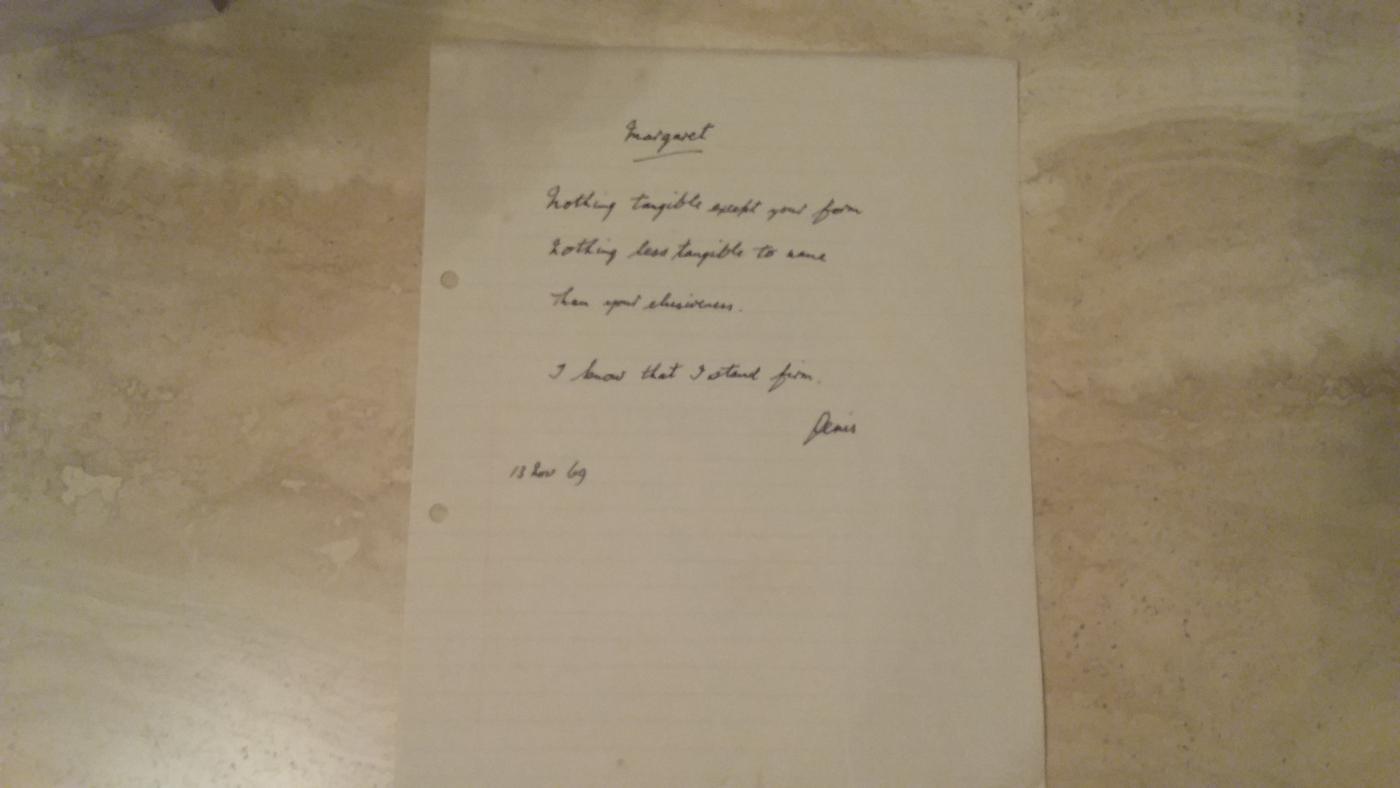 Margaret
Nothing tangible except your form
Nothing less tangible to name
Than your elusiveness.
I know that I stand firm.
Denis
13 Nov 69